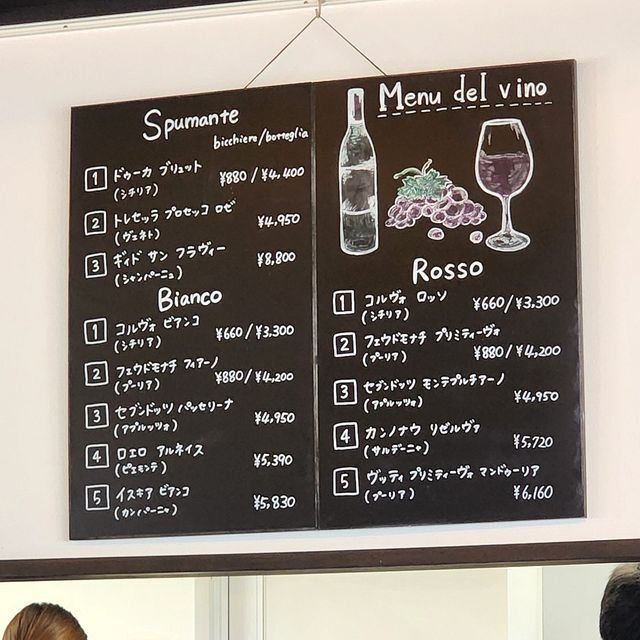 Spumante
bicchiere/botteglia
1 ドゥーカ ブリュット ¥880 / ¥4,400
(シチリア)
2 トレセッラ プロセッコ ロゼ ¥4,950
(ヴェネト)
3 ギィド サン フラヴィー ¥8,800
(シャンパーニュ)
Bianco
1 コルヴォ ビアンコ ¥660 / ¥3,300
(シチリア)
2 フェウドモナチ フィアーノ ¥880 / ¥4,200
(プーリア)
3 セブンドッツ パッセリーナ ¥4,950
(アブルッツォ)
4 ロエロ アルネイス ¥5,390
(ピエモンテ)
5 イスキア ビアンコ ¥5,830
(カンパーニャ)
Menu del vino
Rosso
1 コルヴォ ロッソ ¥660 / ¥3,300
(シチリア)
2 フェウドモナチ プリミティーヴォ
(プーリア) ¥880 / ¥4,200
3 セブンドッツ モンテプルチアーノ
(アブルッツォ) ¥4,950
4 カンノナウ リゼルヴァ
(サルデーニャ) ¥5,720
5 ヴッティ プリミティーヴォ マンドゥーリア
(プーリア) ¥6,160